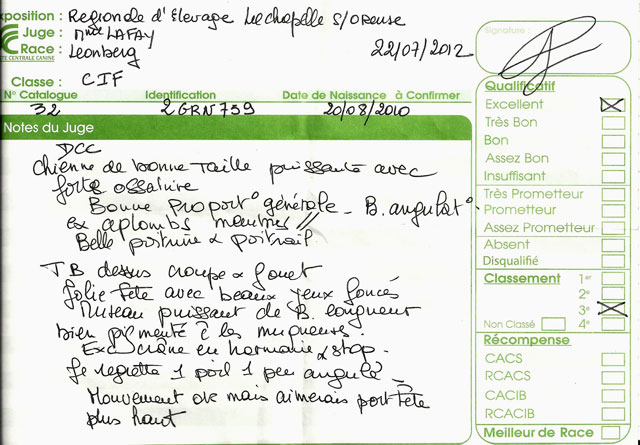 xposition : Regionale d'Elevage Lechapelle S/Oreuse
Signature :
Juge : Mme LAFAY
Race : Leonberg
22/07/2012
TÉ CENTRALE CANINE
Classe : CIF
N° Catalogue Identification Date de Naissance à Confirmer
32 2GRN759 20/08/2010
Notes du Juge
DCC
chienne de bonne Taille puissante avec
forte ossature
Bonne proport° générale - B. angulat°
ex aplombs membres //
Belle poitrine & poitrail
TB dessus croupe & fouet
Jolie Tête avec beaux yeux foncés
Museau puissant de B. longueur
bien pigmenté ê les muqueuses.
Exc crâne en harmonie & stop.
Je regrette 1 poil 1 peu angulé
Mouvement ok mais aimerais port Tête
plus haut
Qualificatif
Excellent
Très Bon
Bon
Assez Bon
Insuffisant
Très Prometteur
Prometteur
Assez Prometteur
Absent
Disqualifié
Classement 1er
2e
3e
Non Classé 4e
Récompense
CACS
RCACS
CACIB
RCACIB
Meilleur de Race